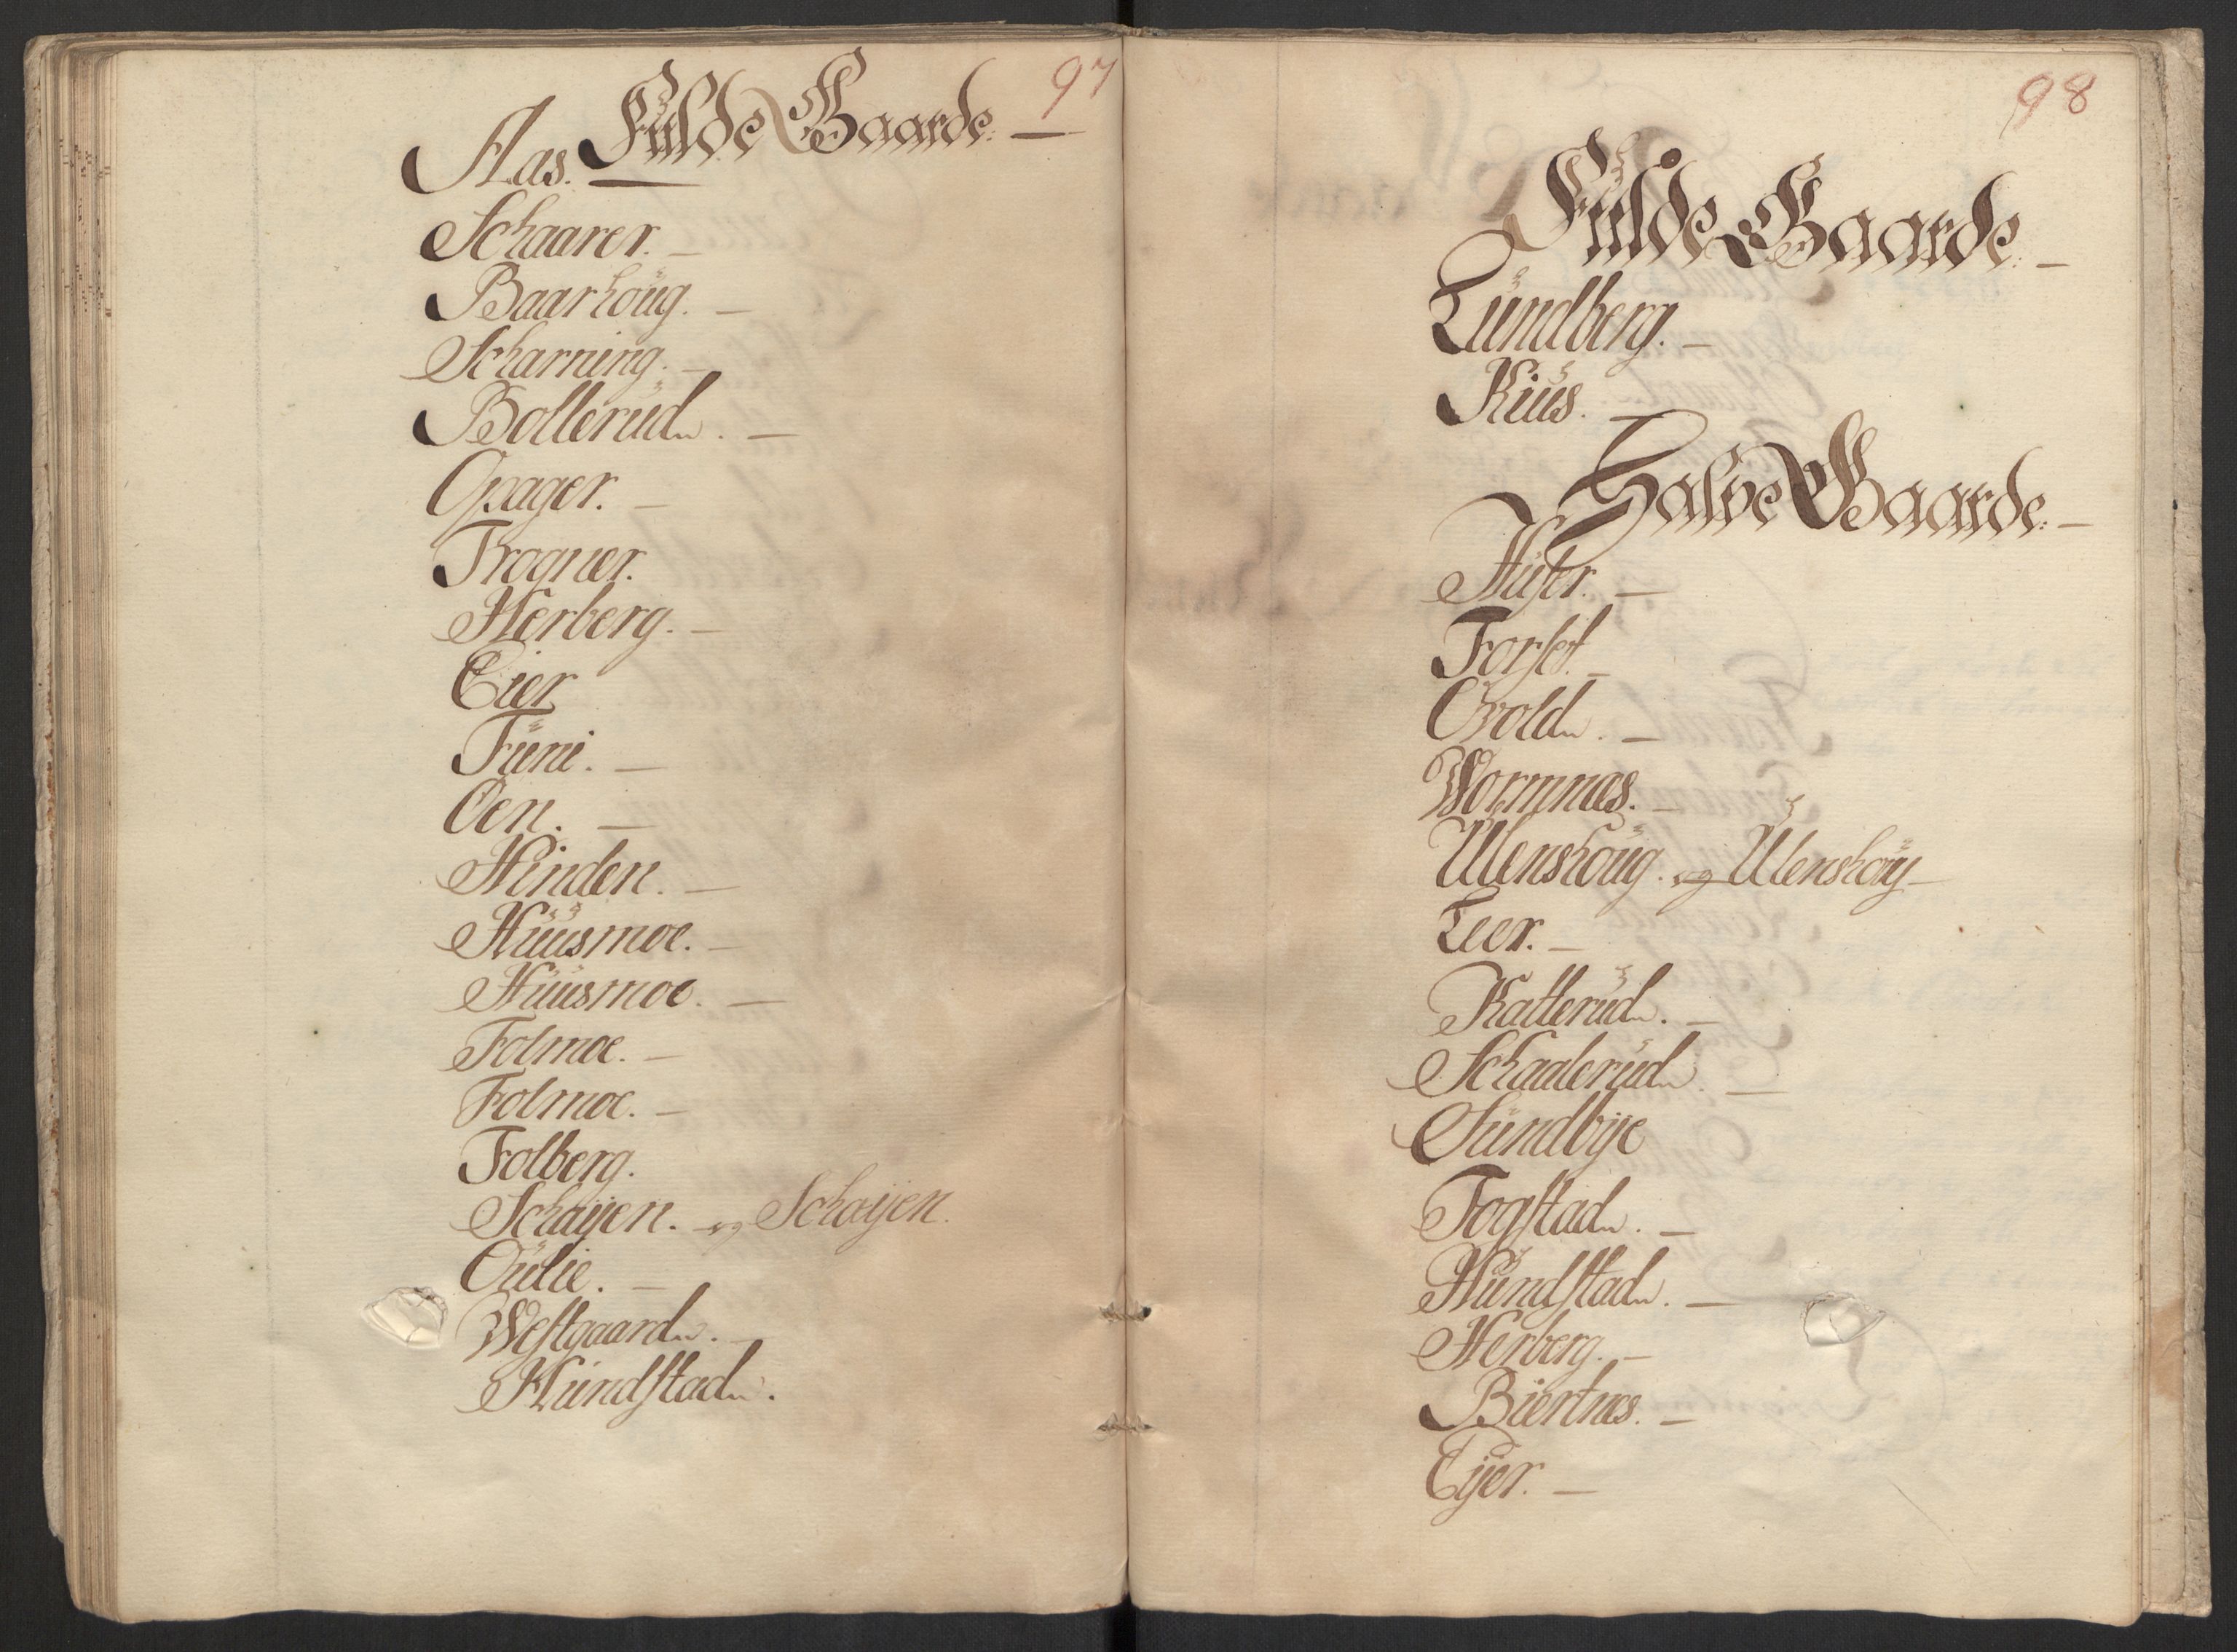 97
Fülde Gaarde. —
Aas.
Schaarer. —
Baarhoüg. —
Scharning. —
Bollerüd. —
Opager. —
Trogner.
Herberg. —
Eier
Füni. —
Oen. —
Hinden. —
Hüüsmoe. —
Hüüsmoe. —
Folmoe. —
Folmoe. —
Folberg.
Schøyen. og Schøyen.
Oülie. —
Westgaard. —
Hündstad.
98
Fülde Gaarde. —
Lündberg. —
Kiüs. —
Halve Gaarde. —
Huser. —
Forset. —
Ovold. —
Wormnæs. —
Ulenshoüg. og Ulenshoüg —
Leer. —
Katterüd. —
Schaalerüd. —
Sündbye
Fogstad. —
Hündstad. —
Herberg. —
Biertnæs. —
Eyer. —